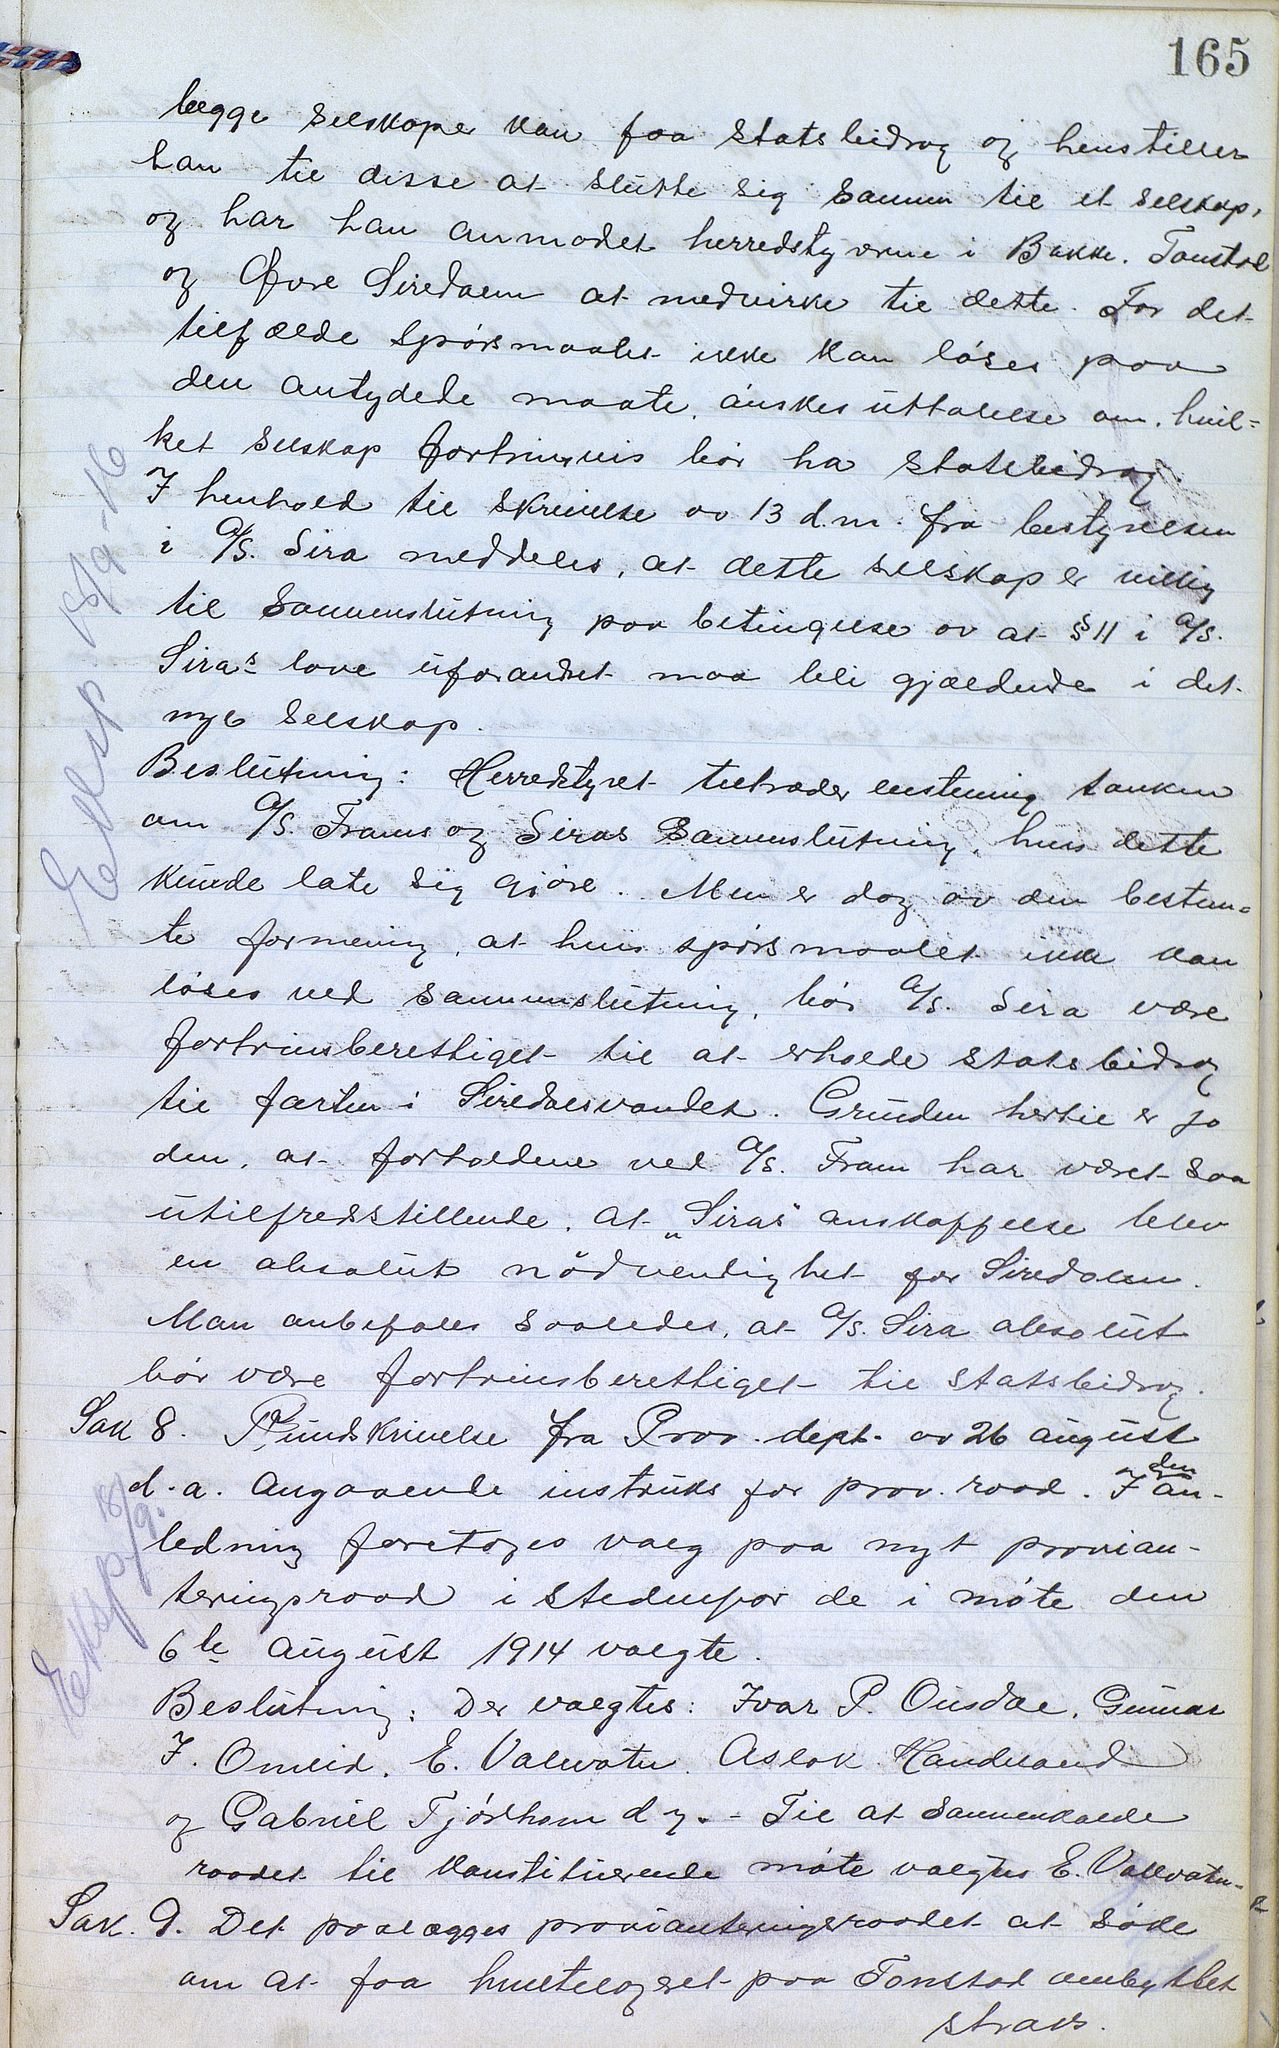 165
begge selskape kan faa statsbidrag og henstiller
han til disse at slutte sig sammen til et selskap,
og har han anmodet herredstyrerne i Bakke, Tonstad
og Øvre Siredalen at medvirke til dette. For det
tilfælde spørsmaalet ikke kan løses paa
den antydede maate, ønskes uttalelse om, hvil=
ket selskap fortrinsvis bør ha statsbidrag.
I henhold til skrivelse av 13 d.m. fra bestyrelsen
i A/S. Sira meddeles, at dette selskap er villig
til sammenslutning paa betingelse av at § 11 i A/S.
Siras love uforandret maa bli gjældende i det
nye selskap.
Eksp 18/9-16
Beslutning: Herredstyret tiltræder enstemmig tanken
om A/S. Frams og Siras sammenslutning, hvis dette
kunde late sig gjøre. Men er dog av den bestem=
te formening, at hvis spørsmaalet ikke kan
løses ved sammenslutning, bør A/S. Sira være
fortrinsberettiget til at erholde statsbidrag
til farten i Siredalsvandet. Grunden hertil er jo
den, at forholdene ved A/S. Fram har været saa
utilfredsstillende, at „Siras" anskaffelse blev
en absolut nödvendighet for Siredalen.
Man anbefales saaledes, at A/S. Sira absolut
bör være fortrinsberettiget til statsbidrag.
Sak 8. Rundskrivelse fra Prov. dept. av 26 august
d.a. angaaende instruks for prov. raad. I den an-
ledning foretages valg paa nyt provian-
teringsraad i stedenfor de i møte den
6te august 1914 valgte.
Eksp. 18/9.
Beslutning: Der valgtes: Ivar P. Ousdal, Gunnar
I. Omlid, E. Valevatn, Aslak Handeland
og Gabriel Tjørhom d.y. - Til at sammenkalde
raadet til konstituerende møte valgtes E. Valevatn.
Sak. 9. Det paalægges provianteringsraadet at søke
om at faa hvetelageret paa Tonstad ombyttet
straks.